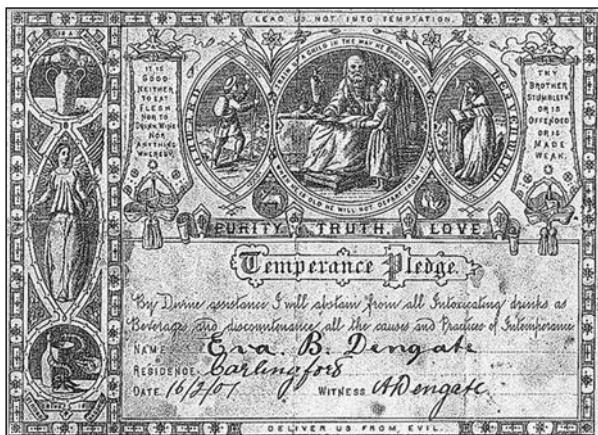 LEAD US NOT INTO TEMPTATION.
IT IS
GOOD
NEITHER
TO EAT
FLESH
NOR TO
DRINK WINE
NOR
ANYTHING
WHEREBY
A CHILD IN THE WAY HE SHOULD GO
WHEN HE IS OLD HE WILL NOT DEPART FROM
HEAVENWARD
THY
BROTHER
STUMBLETH
OR IS
OFFENDED
OR IS
MADE
WEAK.
PURITY TRUTH. LOVE
Temperance Pledge.
By Divine assistance I will abstain from all Intoxicating drinks as
Beverages, and discountenance all the causes and Practices of Intemperance
NAME Eva. B. Dengate
RESIDENCE Carlingford
DATE 16/2/01 WITNESS A Dengate.
DELIVER US FROM, EVIL.